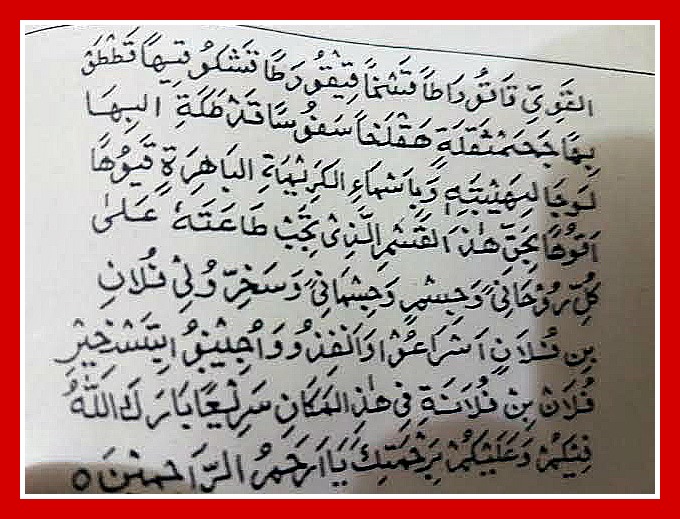 القَوِيِّ قَاتُودَاطَا قَشَخًا قِيْقُودَطًا تَشَكُو فِيهَا قَطَطَقٍ
بِهَا جَحَمَثْقَلَةٍ هَقْلَخَا سَفُوسًا قَدْ طَلَةِ الْبِهَا
لَوجَا لِهَيْبَتِهِ وَبِاَسْمَاءِ الكَرِيْمَةِ البَاهِرَةِ قَيُوهًا
اَقوُهًا بِحَقِّ هٰذَا القَسَمِ الَّذِيْ يَجِبْ طَاعَتَهُ عَلىٰ
كُلِّ رُوْحَانِيٍّ وَجِسْمٍ وَجِسْمَانِيٍّ وَسَخِّرْ وُلِيْ فُلاَنِ
بِن فُلاَنٍ اَسْرَاعُوْا وَانْفِذُوْ وَاُجِيْبُوْا بِتَسْخِيْرِ
فُلاَنْ بِنْ فُلاَنَةِ فِى هٰذِ المَكَانِ سَرِيْعًا بَارَكَ اللّٰهُ
فِيْكُمْ وَعَلَيْكُمْ بِرَحْمَتِكَ يَا اَرْحَمُ الرَّاحِمِيْنَ ٥